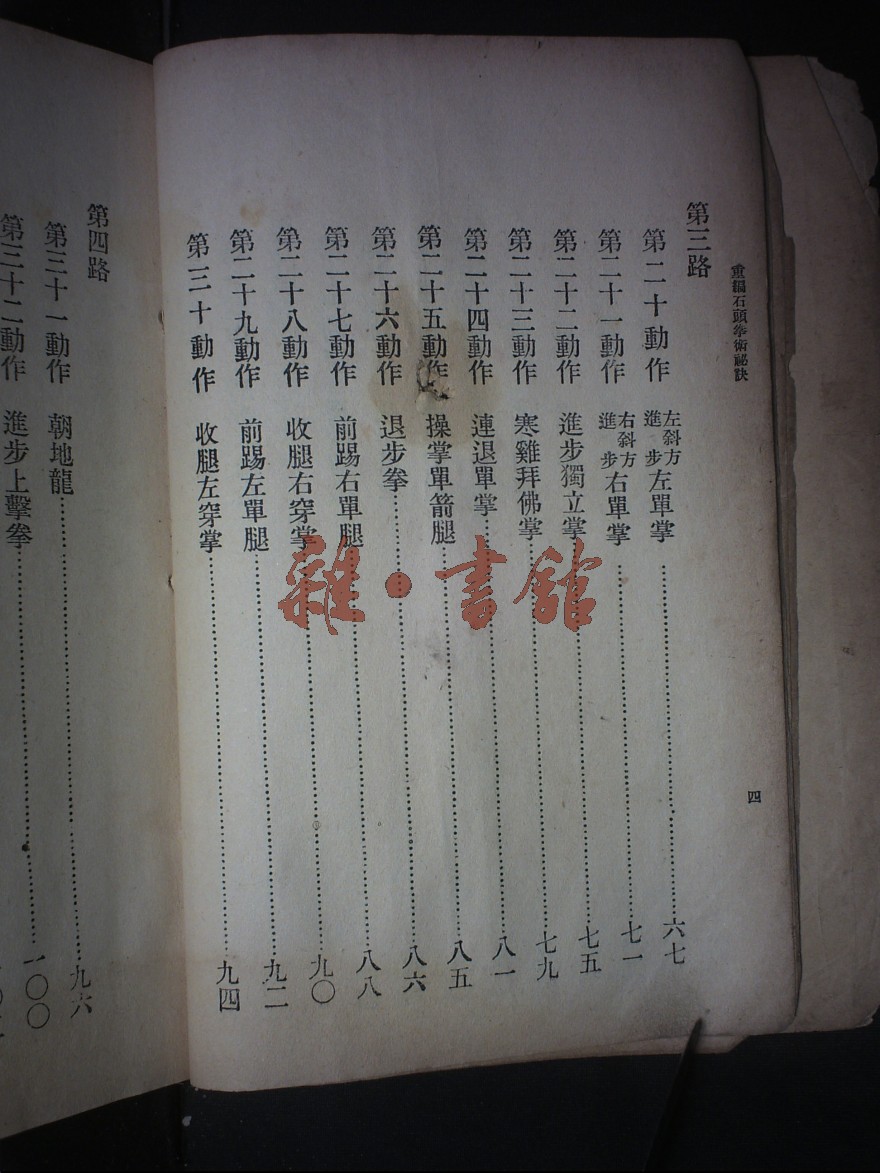 重編石頭拳術祕訣
四
第三路
第二十動作 左斜方進步左單掌……六七
第二十一動作 右斜方進步右單掌……七一
第二十二動作 進步獨立掌……七五
第二十三動作 寒雞拜佛掌……七九
第二十四動作 連退單掌……八一
第二十五動作 操掌單箭腿……八五
第二十六動作 退步拳……八六
第二十七動作 前踢右單腿……八八
第二十八動作 收腿右穿掌……九〇
第二十九動作 前踢左單腿……九二
第三十動作 收腿左穿掌……九四
第四路
第三十一動作 朝地龍……九六
第三十二動作 進步上擊拳……一〇〇
雜·書館